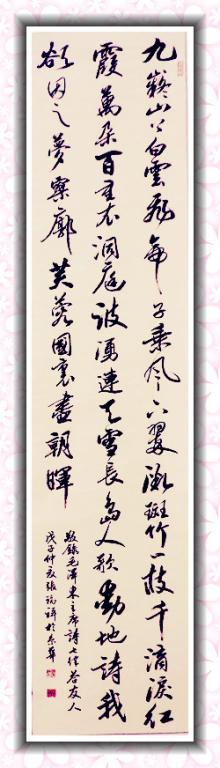 九嶷山上白雲飛帝子乘风下翠微斑竹一枝千滴淚紅
霞萬朵百重衣洞庭波湧連天雪長島人歌動地詩我
欲因之夢寥廓芙蓉國裏盡朝暉
敬錄毛澤東主席詩七律答友人
戊子仲夏張於京華